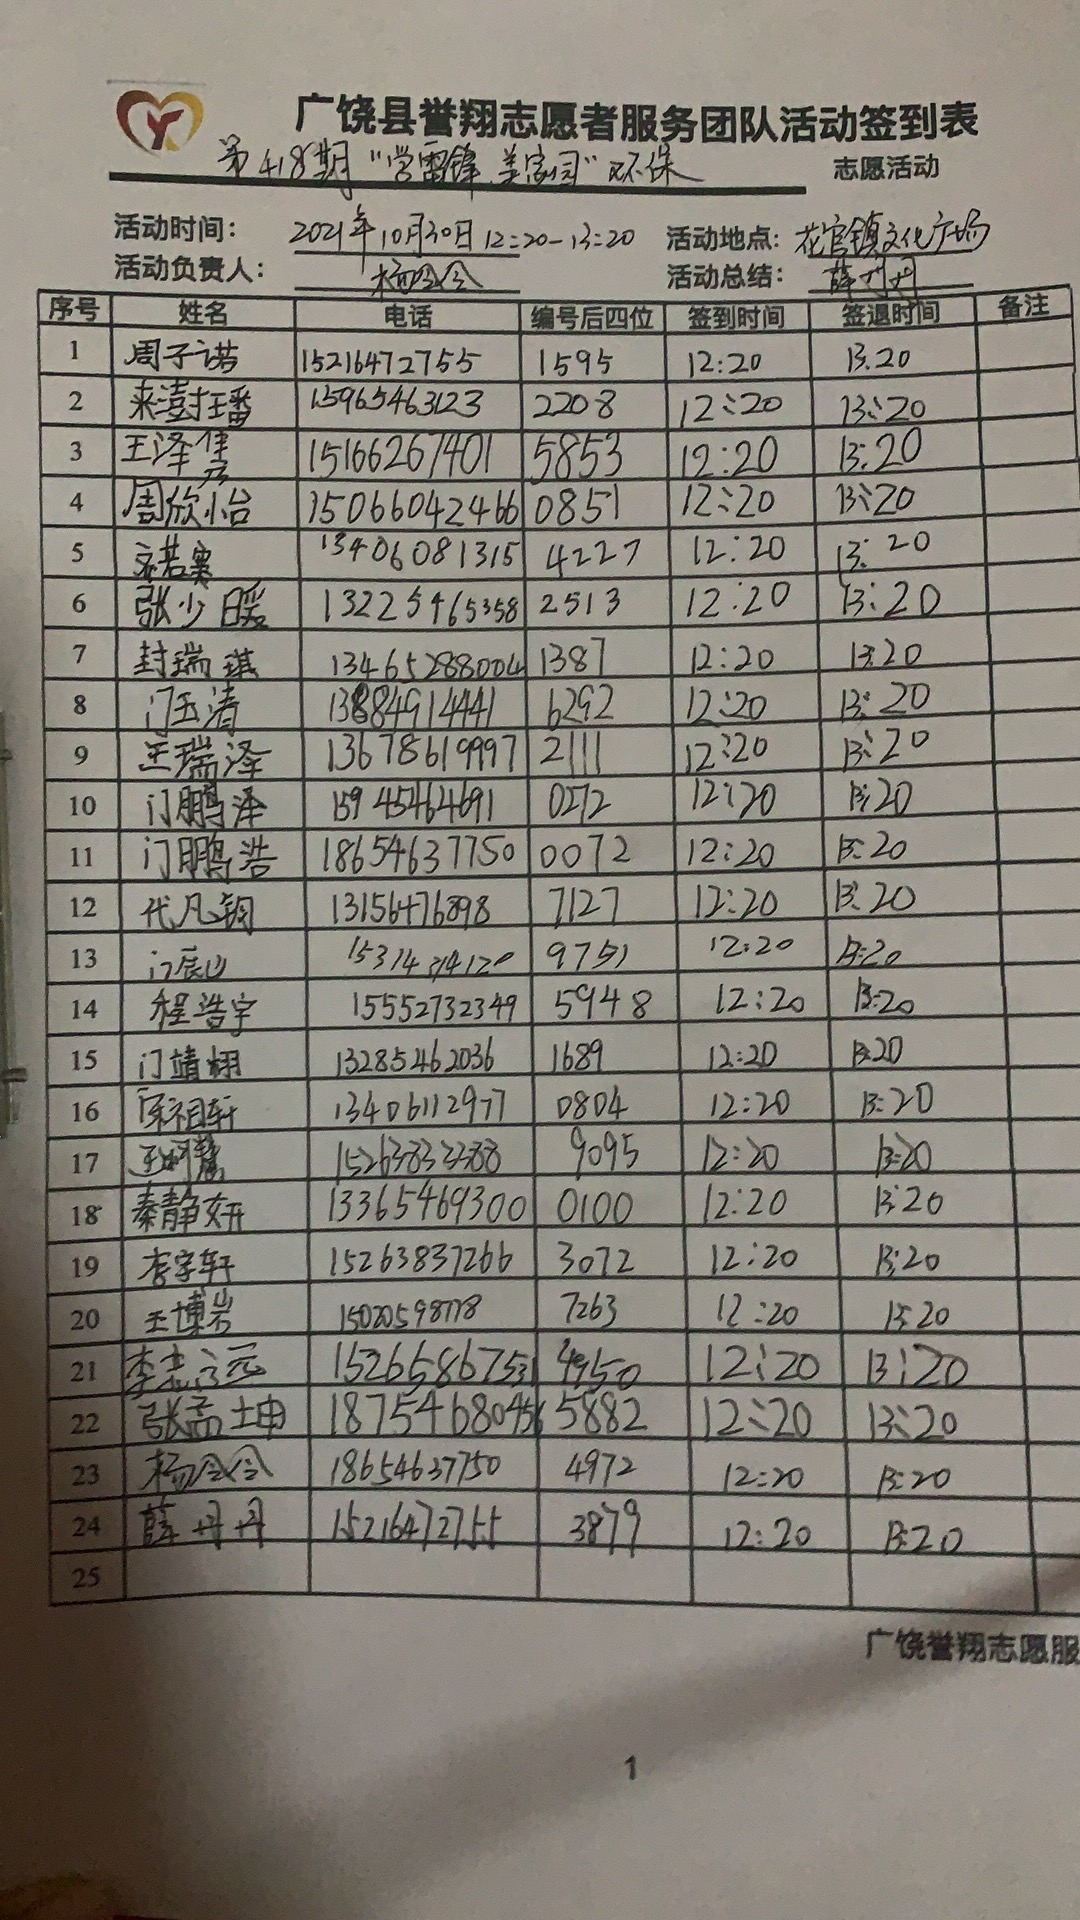 广饶县誉翔志愿者服务团队活动签到表
第418期"学雷锋 美家园"环保 志愿活动
活动时间: 2021年10月30日12:20-13:20 活动地点: 花官镇文化广场
活动负责人: 杨令令 活动总结: 薛丹丹
序号 姓名 电话 编号后四位 签到时间 签退时间 备注
1 周子诺 15216472755 1595 12:20 13:20
2 15965463123 2208 12:20 13:20
3 王泽 15166267401 5853 12:20 13:20
4 周欣怡 15066042466 0851 12:20 13:20
5 13406081315 4227 12:20 13:20
6 张少暖 13225465358 2513 12:20 13:20
7 封瑞琪 13465288004 1387 12:20 13:20
8 门玉清 13884914441 6292 12:20 13:20
9 王瑞泽 13678619997 2111 12:20 13:20
10 门鹏泽 15945464691 0272 12:20 13:20
11 门鹏浩 18654637750 0072 12:20 13:20
12 代凡钧 13156476898 7127 12:20 13:20
13 9751 12:20 13:20
14 程浩宇 15552732349 5948 12:20 13:20
15 门靖栩 13285462036 1689 12:20 13:20
16 祖轩 13406112977 0804 12:20 13:20
17 9095 12:20 13:20
18 秦静妍 13365469300 0100 12:20 13:20
19 李宇轩 15263837266 3072 12:20 13:20
20 王博岩 15020598778 7263 12:20 13:20
21 李志远 15265867531 4950 12:20 13:20
22 张孟坤 18754680456 5882 12:20 13:20
23 杨令令 18654637750 4972 12:20 13:20
24 薛丹丹 15216472755 3879 12:20 13:20
25
广饶誉翔志愿服
1